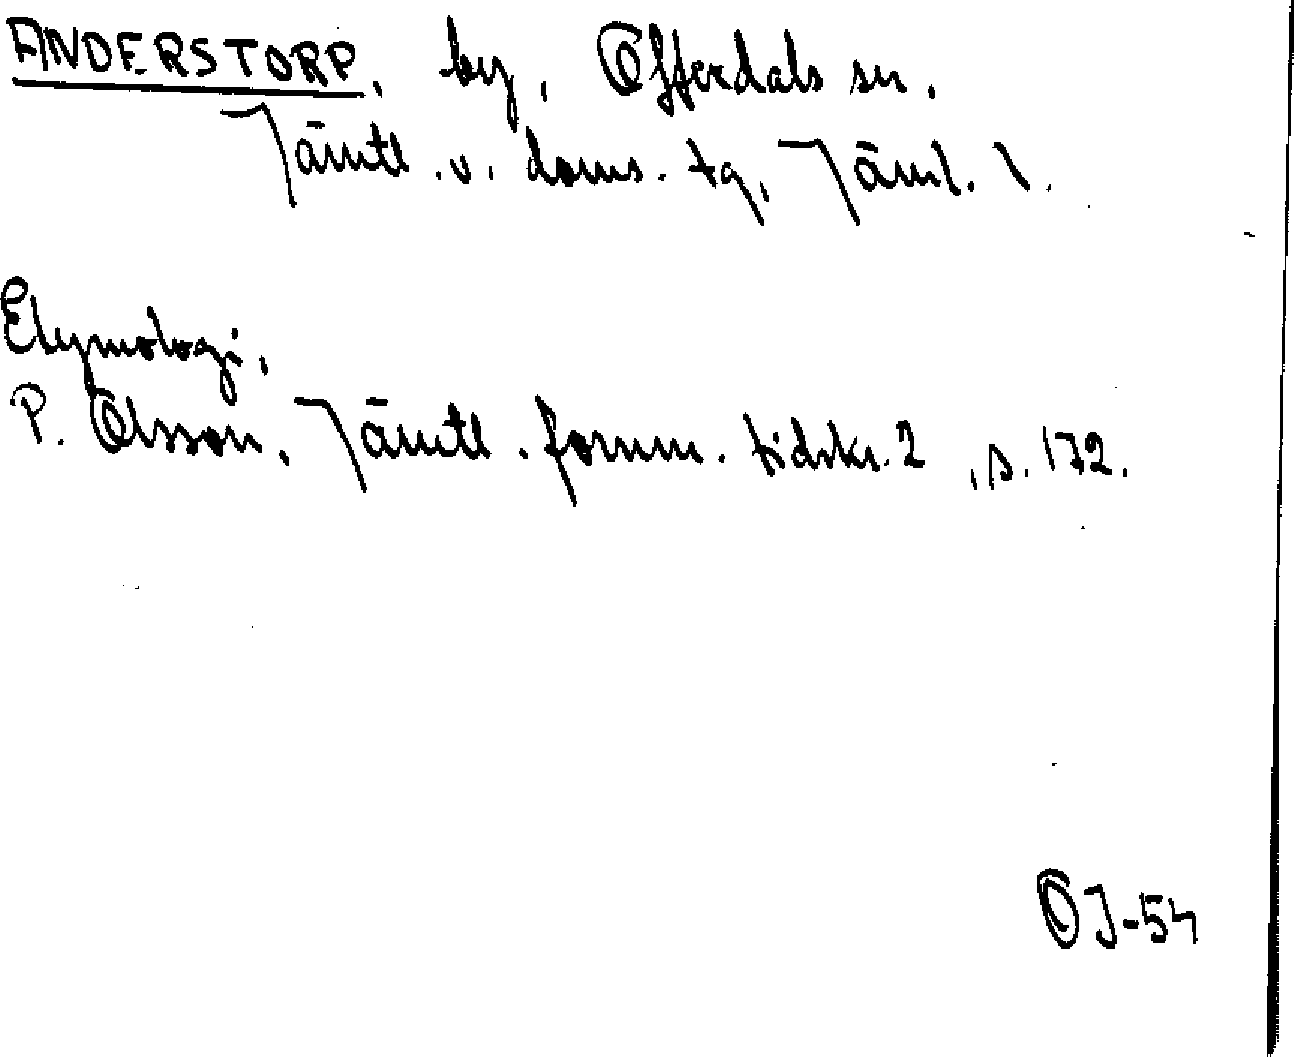 ANDERSTORP, by, Offerdals sn,
Jämtl. v. doms. tg, Jämtl. l.
Etymologi,
P. Olsson, Jämtl. fornm. tidskr. 2, s. 172.
OJ-54